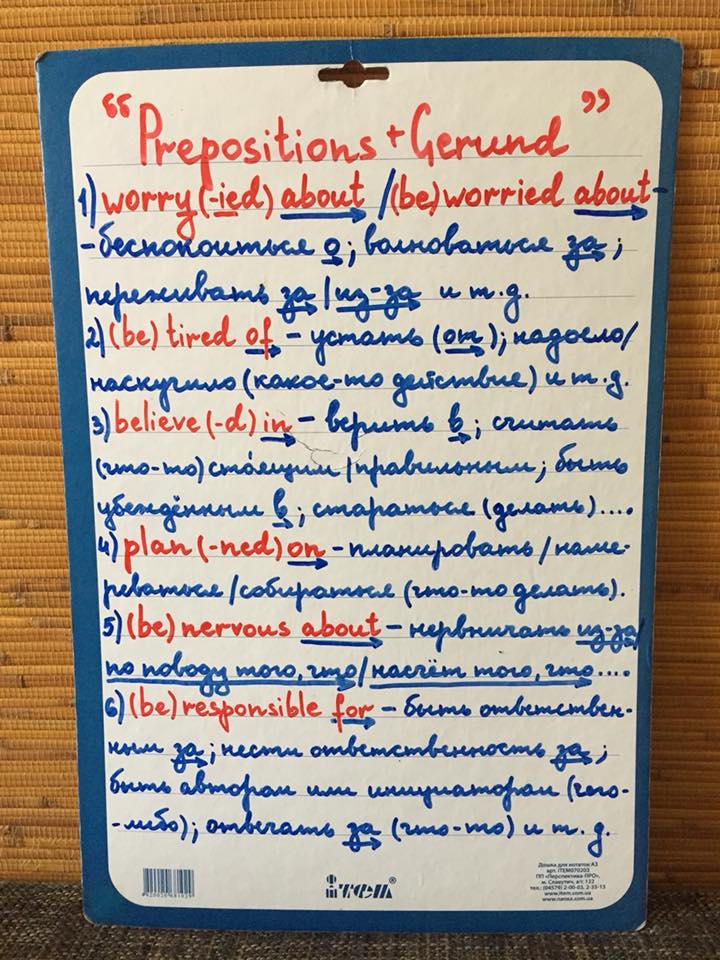 “ Prepositions + Gerund ”
1) worry (-ied) about / (be) worried about -
- беспокоиться о; волноваться за;
переживать за / из-за и т.д.
2) (be) tired of - устать (от); надоело/
наскучило (какое-то действие) и т.д.
3) believe (-d) in - верить в; считать
(что-то) стоящим / правильным; быть
убеждённым в; стараться (делать)....
4) plan (-ned) on - планировать / наме-
реваться / собираться (что-то делать).
5) (be) nervous about - нервничать из-за/
по поводу того, что / насчёт того, что ....
6) (be) responsible for - быть ответствен-
ным за; нести ответственность за;
быть автором или инициатором (чего-
-либо); отвечать за (что-то) и т.д.
ітем®
Дошка для нотаток А3
арт. ITEM070203
ПП «Перспектива-ПРО»,
м. Славутич, а/с 122
тел.: (04579) 2-00-03, 2-35-13
www.item.com.ua